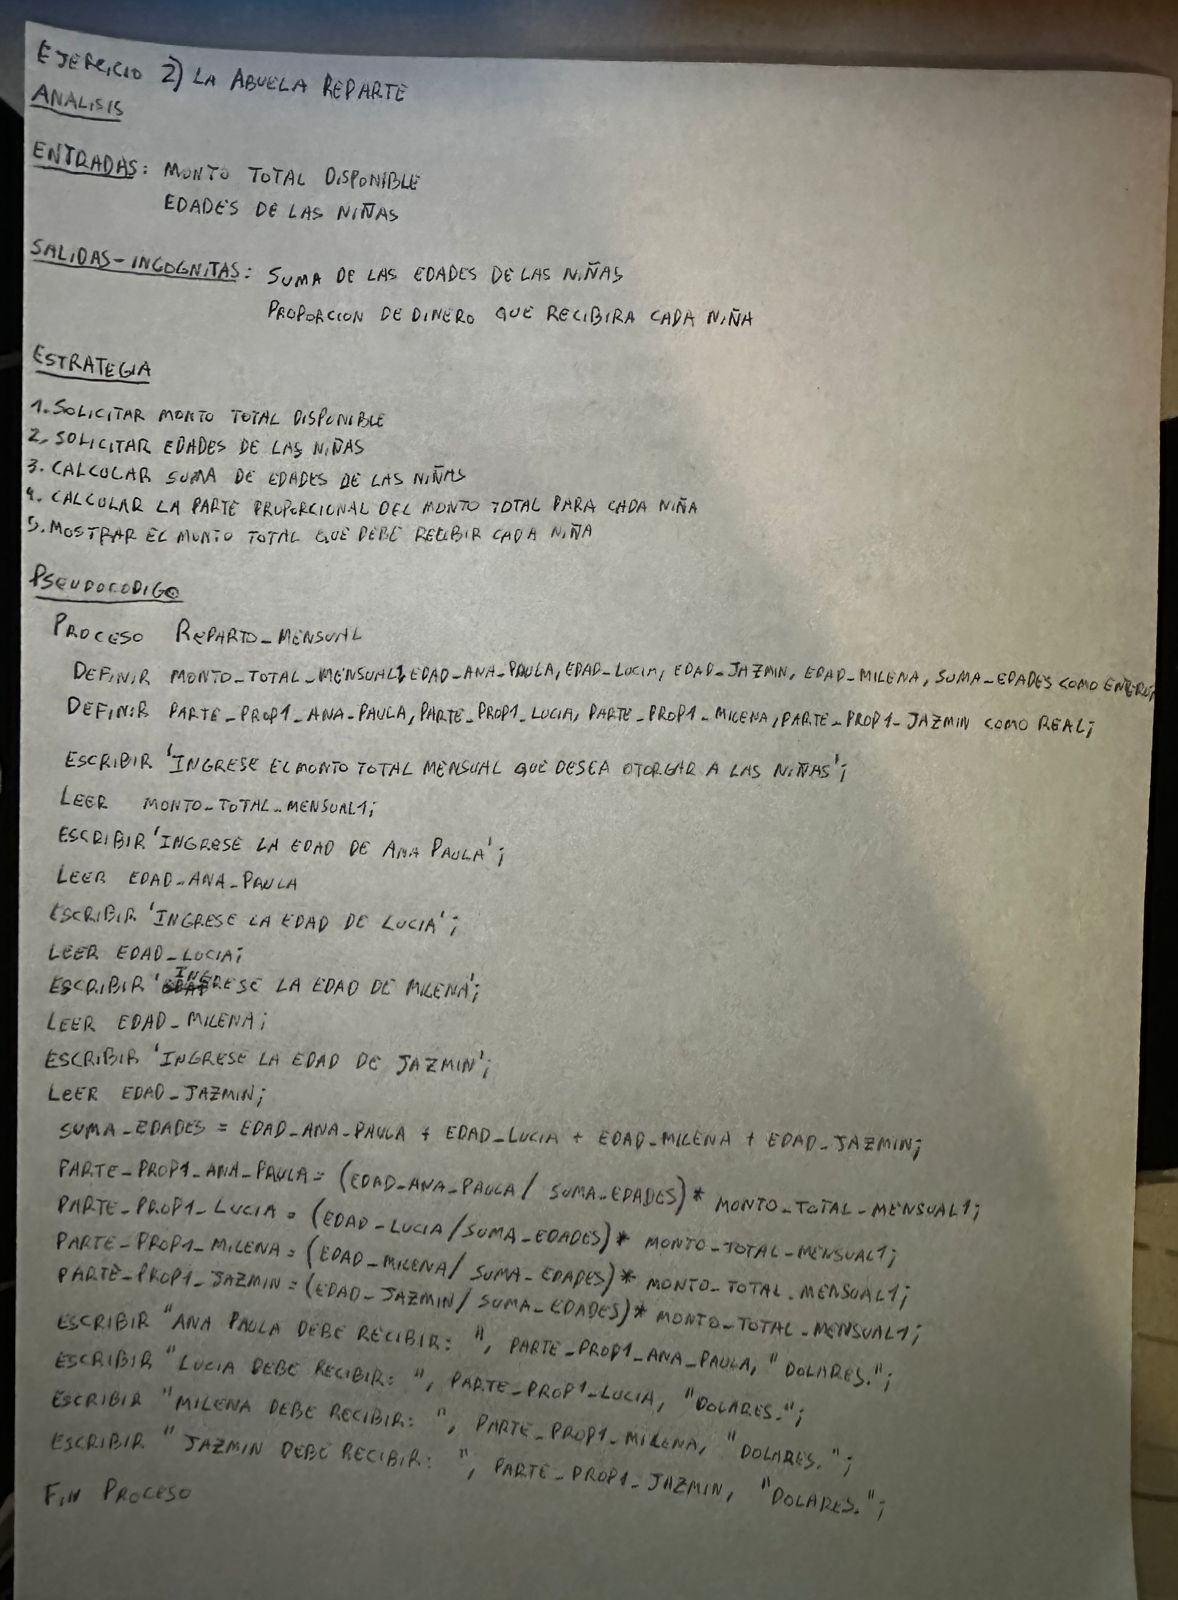 EJERCICIO 2) LA ABUELA REPARTE
ANALISIS
ENTRADAS: MONTO TOTAL DISPONIBLE
EDADES DE LAS NIÑAS
SALIDAS-INCOGNITAS: SUMA DE LAS EDADES DE LAS NIÑAS
PROPORCION DE DINERO QUE RECIBIRA CADA NIÑA
ESTRATEGIA
1. SOLICITAR MONTO TOTAL DISPONIBLE
2. SOLICITAR EDADES DE LAS NIÑAS
3. CALCULAR SUMA DE EDADES DE LAS NIÑAS
4. CALCULAR LA PARTE PROPORCIONAL DEL MONTO TOTAL PARA CADA NIÑA
5. MOSTRAR EL MONTO TOTAL QUE DEBE RECIBIR CADA NIÑA
PSEUDOCODIGO
PROCESO REPARTO_MENSUAL
DEFINIR MONTO_TOTAL_MENSUAL1, EDAD_ANA_PAULA, EDAD_LUCIA, EDAD_JAZMIN, EDAD_MILENA, SUMA_EDADES COMO
DEFINIR PARTE_PROP1_ANA_PAULA, PARTE_PROP1_LUCIA, PARTE_PROP1_MILENA, PARTE_PROP1_JAZMIN COMO REAL;
ESCRIBIR 'INGRESE EL MONTO TOTAL MENSUAL QUE DESEA OTORGAR A LAS NIÑAS';
LEER MONTO_TOTAL_MENSUAL1;
ESCRIBIR 'INGRESE LA EDAD DE ANA PAULA';
LEER EDAD_ANA_PAULA
ESCRIBIR 'INGRESE LA EDAD DE LUCIA';
LEER EDAD_LUCIA;
ESCRIBIR 'INGRESE LA EDAD DE MILENA';
LEER EDAD_MILENA;
ESCRIBIR 'INGRESE LA EDAD DE JAZMIN';
LEER EDAD_JAZMIN;
SUMA_EDADES = EDAD_ANA_PAULA + EDAD_LUCIA + EDAD_MILENA + EDAD_JAZMIN;
PARTE_PROP1_ANA_PAULA = (EDAD_ANA_PAULA / SUMA_EDADES) * MONTO_TOTAL_MENSUAL1;
PARTE_PROP1_LUCIA = (EDAD_LUCIA / SUMA_EDADES) * MONTO_TOTAL_MENSUAL1;
PARTE_PROP1_MILENA = (EDAD_MILENA / SUMA_EDADES) * MONTO_TOTAL_MENSUAL1;
PARTE_PROP1_JAZMIN = (EDAD_JAZMIN / SUMA_EDADES) * MONTO_TOTAL_MENSUAL1;
ESCRIBIR "ANA PAULA DEBE RECIBIR: ", PARTE_PROP1_ANA_PAULA, "DOLARES.";
ESCRIBIR "LUCIA DEBE RECIBIR: ", PARTE_PROP1_LUCIA, "DOLARES.";
ESCRIBIR "MILENA DEBE RECIBIR: ", PARTE_PROP1_MILENA, "DOLARES.";
ESCRIBIR "JAZMIN DEBE RECIBIR: ", PARTE_PROP1_JAZMIN, "DOLARES.";
FIN PROCESO